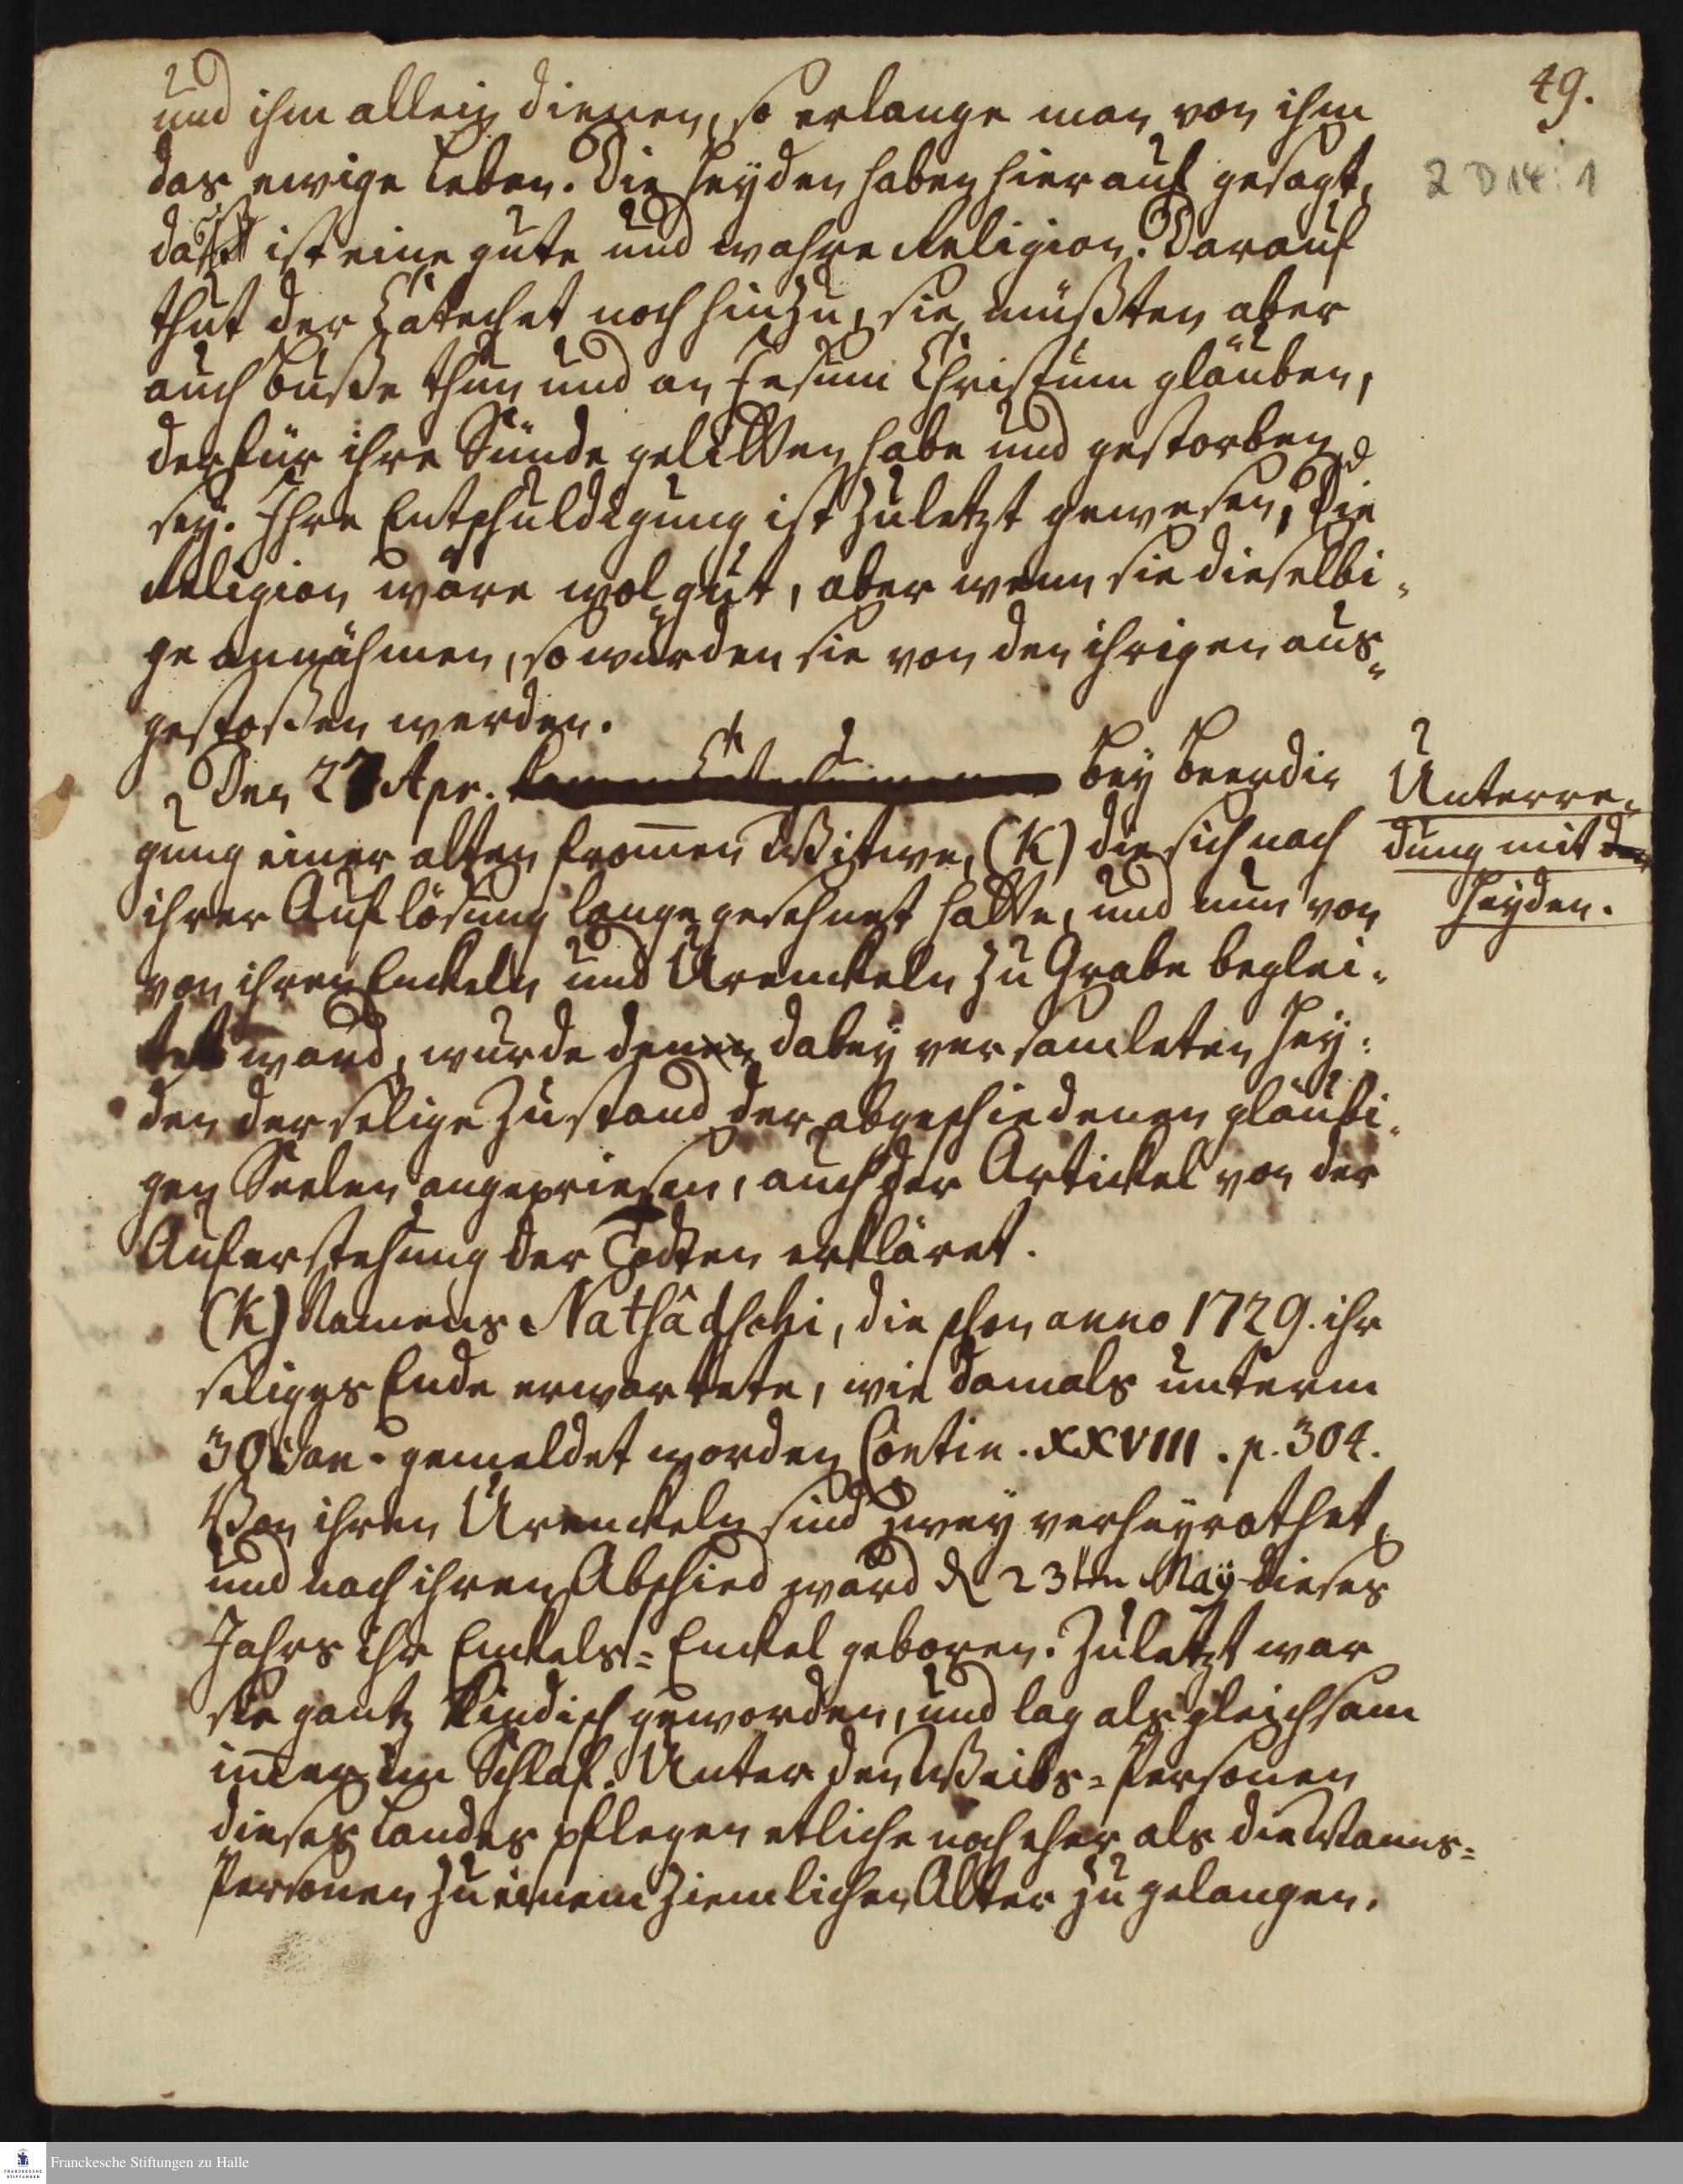 49.
2 D 14: 1
und ihm allein dienen, so erlange man von ihm
das ewige Leben. Die Heyden haben hierauf gesagt,
daß ist eine gute und wahre Religion. Darauf
thut der Catechet noch hinzu, sie müßten aber
auch Buße thun und an Jesum Christum gläuben,
der für ihre Sünde gelitten habe und gestorben
sey. Ihre Entschuldigung ist zuletzt gewesen, die
Religion wäre wol gut, aber wenn sie dieselbi-
ge annähmen, so würden sie von den ihrigen aus-
gestoßen werden.
Den 27 Apr. Bey Beerdi-
gung einer alten from̅en Witwe, (K) die sich nach
ihrer Auflösung lange gesehnet hatte, und nun von
von ihren Enckeln und Urenckeln zu Grabe beglei-
tet ward, wurde denen dabey versamleten Hey-
den der selige Zustand der abgeschiedenen gläubi-
gen Seelen angepriesen, auch der Artickel von der
Auferstehung der Todten erkläret.
Unterre-
dung mit
Heyden.
(K) Namens Nathâdschi, die schon anno 1729. ihr
seliges Ende erwartete, wie damals unterm
30 Jan. gemeldet worden Contin. XXVIII. p. 304.
Von ihren Urenckeln sind zwey verheyrathet,
und nach ihren Abschied ward d 23ten May dieses
Jahrs ihr Enckels-Enckel geboren. Zuletzt war
sie gantz kindisch geworden, und lag als gleichsam
im̅er im Schlaf. Unter den Weibs-Personen
dieses Landes pflegen etliche noch eher als die Manns-
Personen zu einem ziemlichen Alter zu gelangen.
Franckesche Stiftungen zu Halle
FRANCKESCHE
STIFTUNGEN